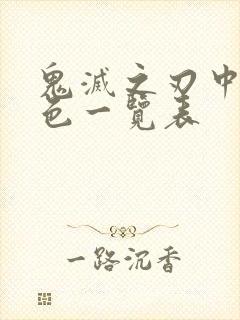 鬼滅之刃中
色一覽表
一路沉香